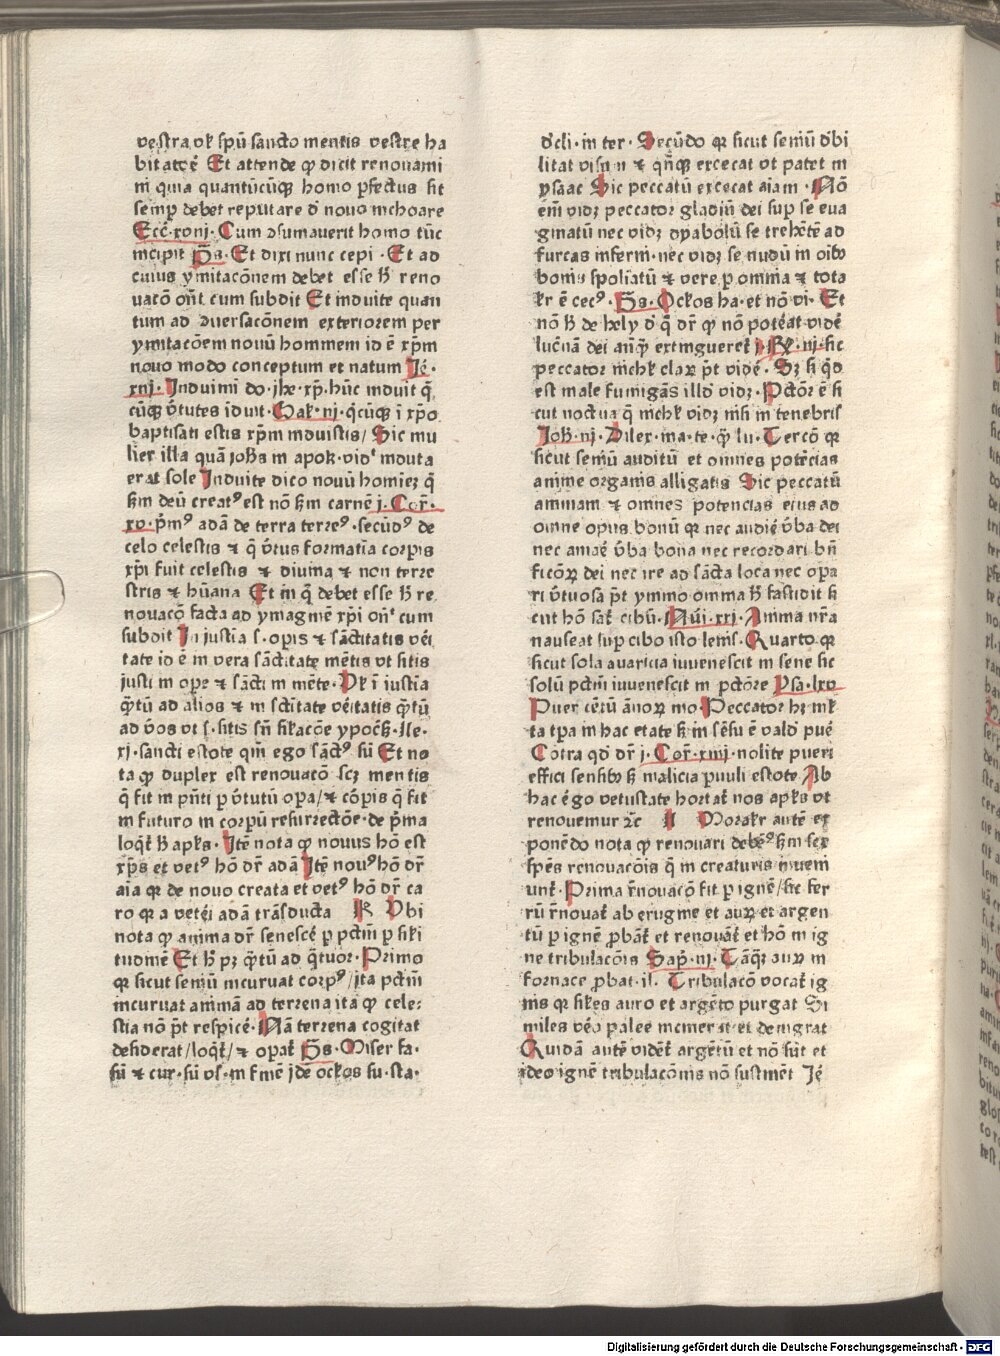 vestra vel spū sancto mentis vestre ha
bitatōe Et attende ꝙ dicit renouami
ni quia quantūcūqꝫ homo ꝑfectus sit
semꝑ debet reputare d̄ nouo inchoare
Ecc̄. xviij. Cum ↄsumauerit homo tūc
incipit p̄s. Et dixi nunc cepi . Et ad
cuius ymitacōnem debet esse h̄ reno
uacō on̄t cum subdit Et induite quan
tum ad ↄuersacōnem exteriorem per
ymitacōem nouū hominem id ē xp̄m
nouo modo conceptum et natum Ie̅.
xiij. Induimi do. ihe. xp̄. hūc induit q̄
cūqꝫ v̄tutes iduit. Gal. iij. q̄cūqꝫ ī xp̄o
baptisati estis xp̄m induistis/ Sic mu
lier illa quā iohs in apok. vidꝰ induta
erat sole Induite dico nouū homieꝫ q̄
ẜm deū creatꝰ est nō ẜm carnē j. Cor̄.
xv. p̄mꝰ adā de terra terreꝰ. secūdꝰ de
celo celestis ⁊ q̄ v̄tus formatīa corpis
xp̄i fuit celestis ⁊ diuina ⁊ non terre
stris ⁊ hūana Et in q̄ debet esse h̄ re
nouacō facta ad ymaginē xp̄i on̄t cum
subdit In iustīa s. opis ⁊ sāctitatis vēi
tate id ē in vera sāctitate mētis vt sitis
iusti in ope ⁊ sācti in mēte. Vl ī iustia
q̄tū ad alios ⁊ in sctitate vēitatis q̄tū
ad v̄os vt s. sitis sn̄ sikacōe ypoc̄ꝫ. Ile.
xj. sancti estote qm̄ ego sāctꝰ sū Et no
ta ꝙ duplex est renouacō scꝫ mentis
q̄ fit in pn̄ti ꝑ v̄tutū opa/ ⁊ cōpis q̄ fit
in futuro in corpū resurrectōe. de p̄ma
loqt̄ h̄ apls. Itē nota ꝙ nouus hō est
xp̄s et vetꝰ hō dr̄ adā Itē nouꝰ hō dr̄
aīa qꝛ de nouo creata et vetꝰ hō dr̄ ca
ro qꝛ a vetēi adā trāsducta R Vbi
nota ꝙ anima dr̄ senescē ꝑ pctm̄ ꝑ sili
tudinē Et h̄ pꝫ q̄tū ad q̄tuor. Primo
qꝛ sicut seniū incuruat corpꝰ/ita pctm̄
incuruat animā ad terrena ita ꝙ cele-
stia nō p̄t respicē. Nā terrena cogitat
desiderat/loqt̄/ ⁊ opat̄ p̄s. Miser fa.
sū ⁊ cur. sū vs. in finē idē ocl̄os su. sta.
dcli. in ter. Secūdo qꝛ sicut seniū d̄bi
litat visum ⁊ qn̄qꝫ excecat vt patet in
ysaac Sic peccatū excecat aīam. Nō
em̄ vidꝫ peccator gladiū dei sup se eua
ginatū nec vidꝫ dyabolū se trehētē ad
furcas inferni. nec vidꝫ se nudū in oībꝰ
bonis spoliatū ⁊ vere ꝑ omnia ⁊ tota
lr̄ ē cecꝰ. p̄s. Ocl̄os ha. et nō vi. Et
nō h̄ de hely d̄ q̄ dr̄ ꝙ nō potēat vidē
lucn̄ā dei anq̄ extinguereꞇ̄ j. R̄. iij. sic
peccator nichil claꝝ p̄t vidē. Sꝫ si q̄d
est male fumigās illd̄ vidꝫ. Pctōr ē si
cut noctua q̄ nichil vidꝫ nisi in tenebris
Joh. iij. Dilex. ma. te. q̄ lu. Tercō qꝛ
sicut seniū auditū et omnes potēcias
anime organis alligatis Sic peccatū
animam ⁊ omnes potencias eius ad
omne opus bonū qꝛ nec audiē v̄ba dei
nec amaē v̄ba bona nec recordari bn̄
ficōꝝ dei nec ire ad sācta loca nec opa
ri v̄tuosa p̄t ymmo omnia h̄ fastidit si
cut hō sat̄ cibū. Nūi. xxj. Anima nr̄a
nauseat sup cibo isto leuis̄. Quarto qꝛ
sicut sola auaricia iuuenescit in sene sic
solū pctm̄ iuuenescit in pctōre Ysa. lxv
Puer cētū ānoꝝ mo. Peccator hꝫ ml̄
ta tpa in hac etate sꝫ in sēsu ē vald̄ puē
Cōtra qd̄ dr̄ j. Cor̄. xiiij. nolite pueri
effici sensibꝰ sꝫ malicia puuli estote. Ab
hac ēgo vetustate hortat̄ nos apls vt
renouemur ⁊c̄ Moralr̄ autē ex
ponēdo nota ꝙ renouari debeꝰ ẜm sex
spēs renouacōis q̄ in creaturis inueni
unt̄. Prima r̄nouacō fit ꝑ ignē/sic fer
rū r̄nouat̄ ab erugine et auꝝ et argen
tū ꝑ ignē ꝓbat̄ et renouat̄ et hō in ig
ne tribulacōis Sap̄. iij. Tāqꝫ auꝝ in
fornace ꝓbat. il. Tribulacō vocat̄ ig
nis qꝛ siles auro et argēto purgat Si
miles vēo palee incinerat et denigrat
Quidā autē vidēt̄ argētū et nō sūt et
ideo ignē tribulacōnis nō sustinēt Ie̅
Digitalisierung gefördert durch die Deutsche Forschungsgemeinschaft - DFG